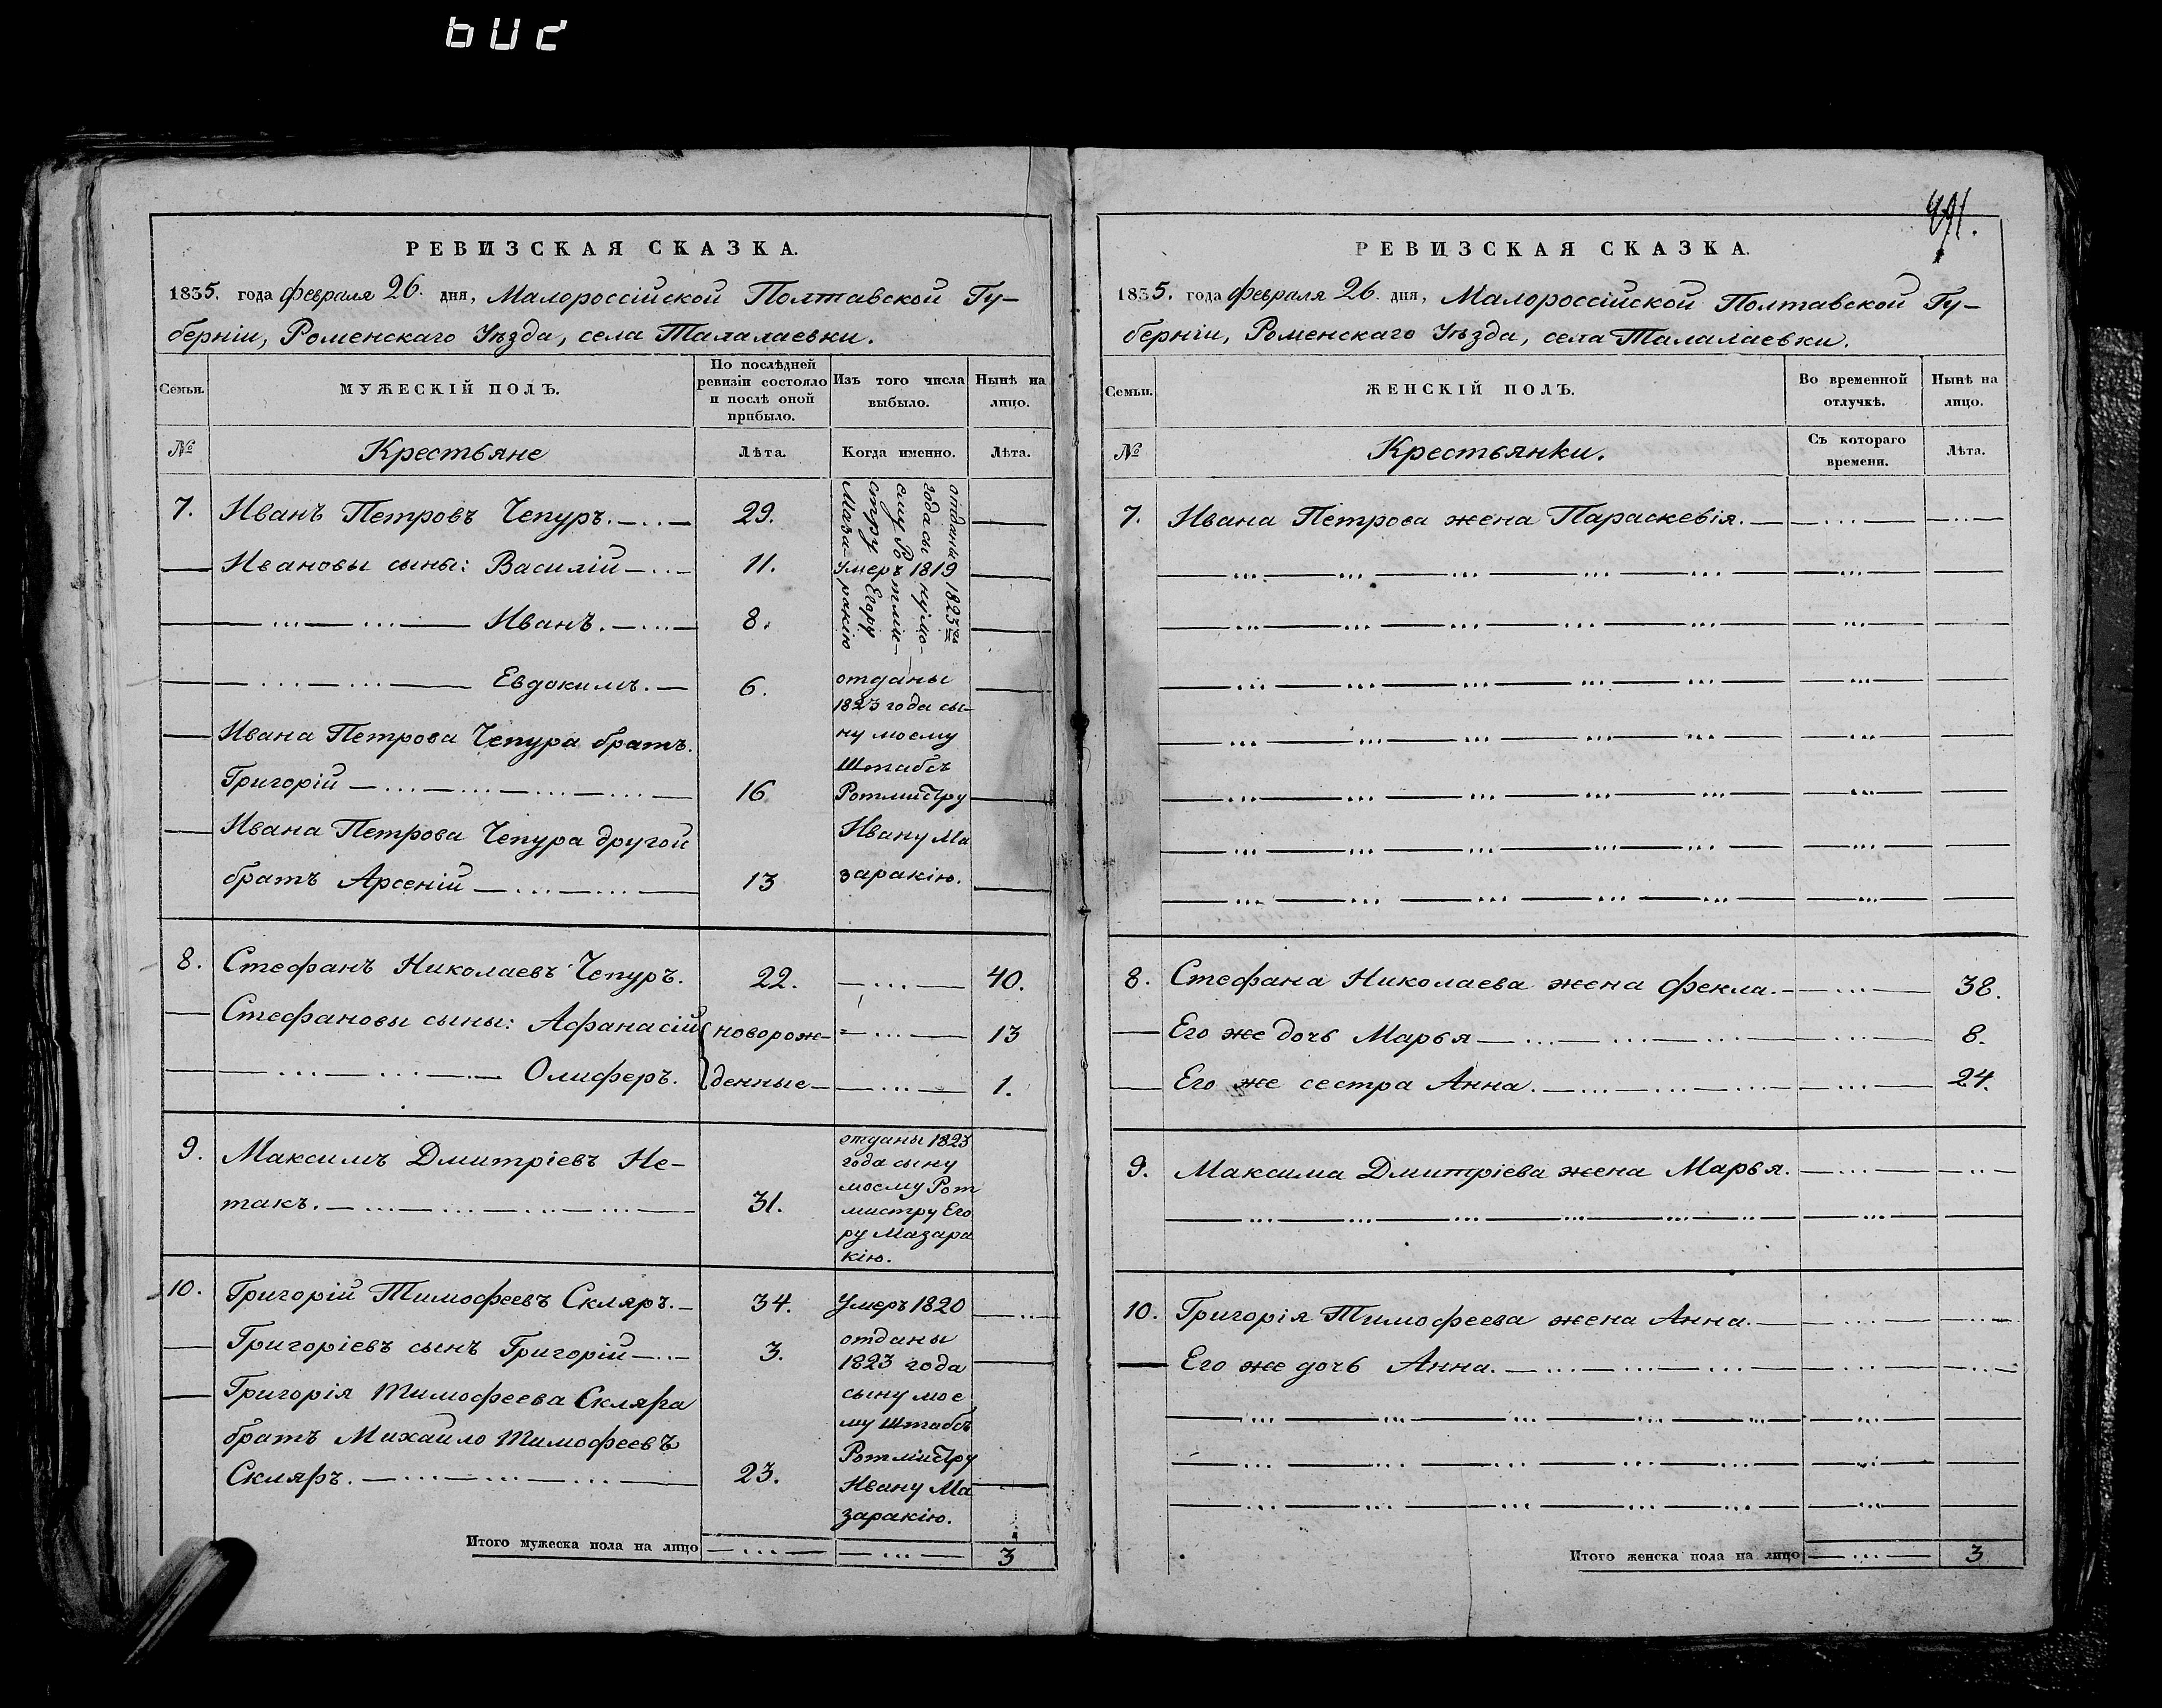 602
РЕВИЗСКАЯ СКАЗКА.
1835. года февраля 26. дня, Малороссійской Полтавской Гу-
берніи, Роменскаго Уѣзда, села Талалаевки.
Семьи.
МУЖЕСКІЙ ПОЛЪ.
По послѣдней ревизіи состояло и послѣ оной прибыло.
Изъ того числа выбыло.
Нынѣ на лицо.
№ Крестьяне Лѣта. Когда именно. Лѣта.
7. Иванъ Петровъ Чепуръ. 29.
отданъ 1823го
года сы ну мо-
ему Ротми-
стру Егору
Маза-ракію
Ивановы сыны: Василій 11. Умеръ 1819
Иванъ. 8.
Евдокимъ. 6.
Ивана Петрова Чепура братъ
Григорій 16
Ивана Петрова Чепура другой
братъ Арсеній 13
отданы
1823 года сы-
ну моему
Штабсъ
Ротмистру
Ивану Ма
заракію.
8. Стефанъ Николаевъ Чепуръ. 22. 40.
Стефановы сыны: Афанасій новорож- 13
Олиферъ. денные 1.
9. Максимъ Дмитріевъ Не-
такъ. 31.
отданы 1823
года сыну
моему Рот
мистру Его
ру Мазара
кію.
10. Григорій Тимофеевъ Скляръ. 34. Умеръ 1820
Григоріевъ сынъ Григорій 3.
Григорія Тимофеева Скляра
братъ Михайло Тимофеевъ
Скляръ. 23.
отданы
1823 года
сыну мое
му Штабсъ
Ротмистру
Ивану Ма
заракію.
Итого мужеска пола на лицо 3
491.
РЕВИЗСКАЯ СКАЗКА.
1835. года февраля 26. дня, Малороссійской Полтавской Гу-
берніи, Роменскаго Уѣзда, села Талалаевки.
Семьи.
ЖЕНСКІЙ ПОЛЪ.
Во временной отлучкѣ.
Нынѣ на лицо.
№ Крестьянки. Съ котораго времени. Лѣта.
7. Ивана Петрова жена Параскевія.
8. Стефана Николаева жена Фекла. 38.
Его же дочь Марья 8.
Его же сестра Анна. 24.
9. Максима Дмитріева жена Марья.
10. Григорія Тимофеева жена Анна.
Его же дочь Анна.
Итого женска пола на лицо 3